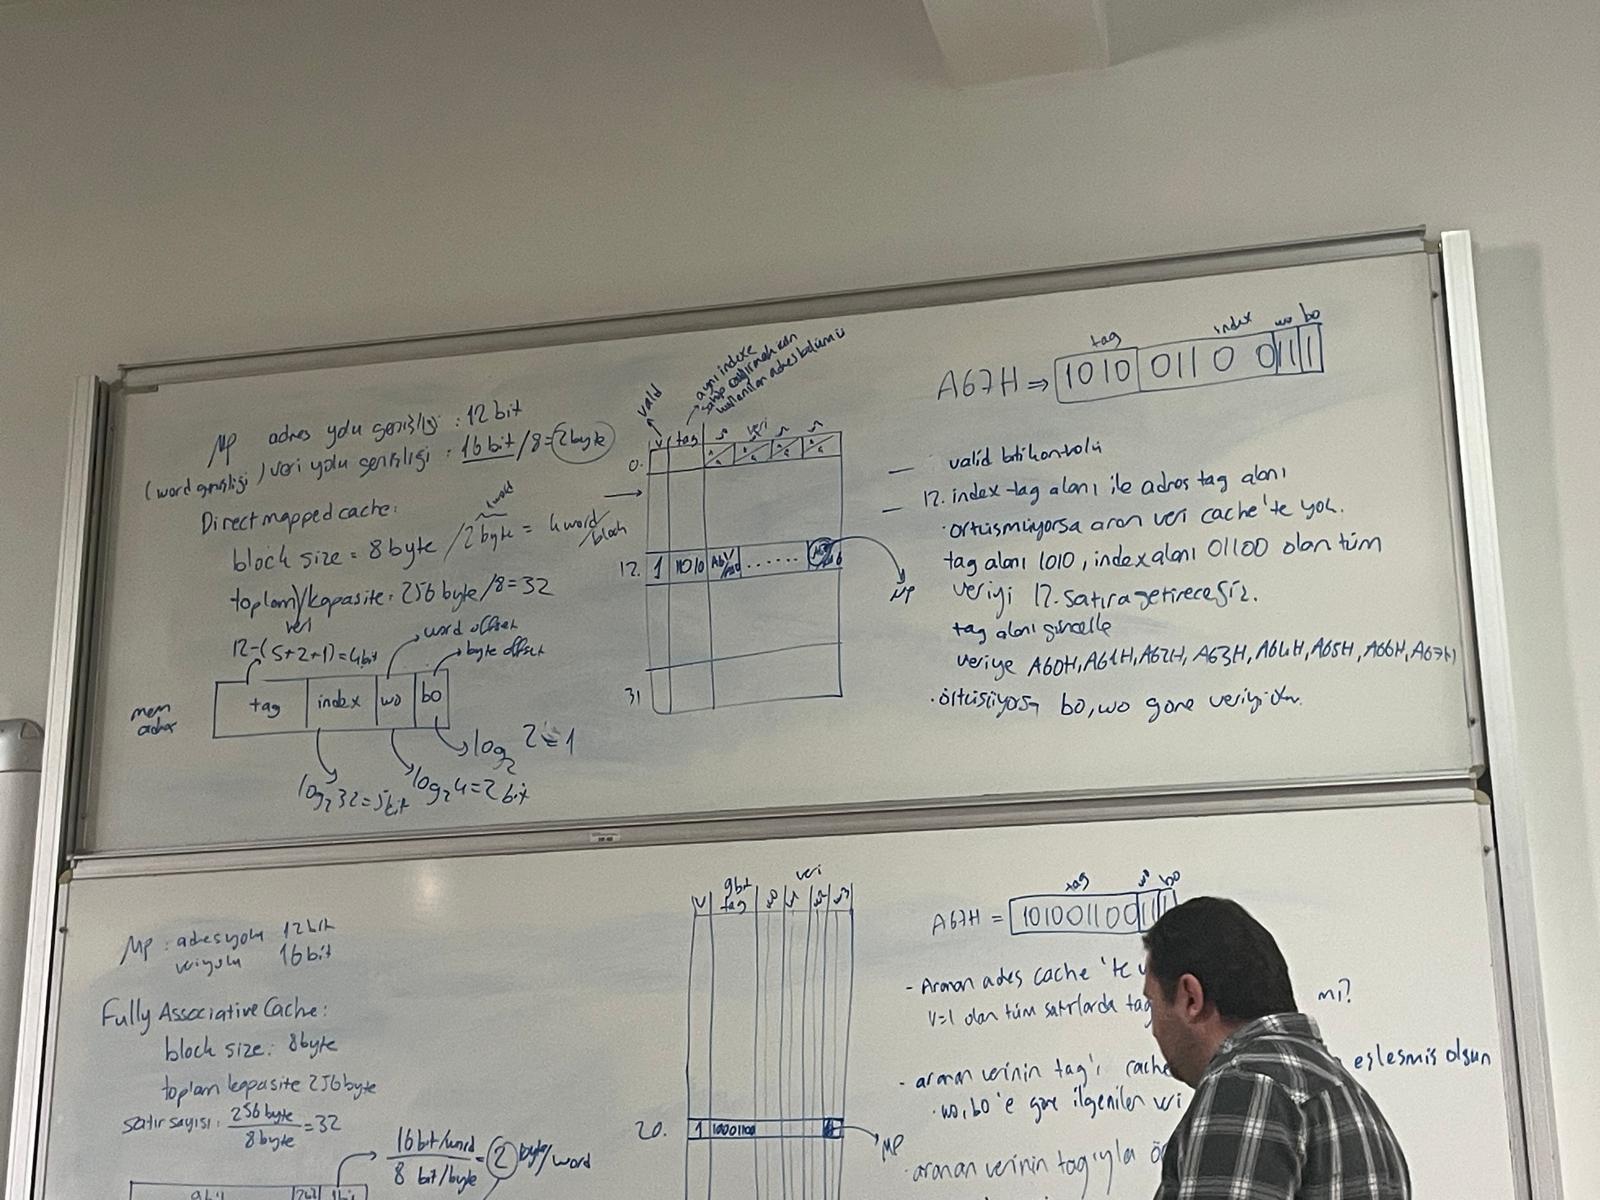 MP adres yolu genişliği : 12 bit
(word genişliği) veri yolu genişliği : 16 bit/8=2byte
Direct mapped cache:
1 word
block size = 8 byte / 2 byte = 4 word/block
toplam kapasite: 256 byte/8=32
veri
12-(5+2+1)=4bit
word offset
byte offset
mem
tag index wo bo
log₂32=5bit
log₂4=2bit
log₂2=1
valid
aynı indexe
kullanılan adres bölümü
V tag veri
0.
12. 1 1010 ......
MP
31
tag index wo bo
A67H ⇒ 1010 0110 0 11 1
— valid biti kontrolü
— 12. index tag alanı ile adres tag alanı
· örtüşmüyorsa aran veri cache'te yok.
tag alanı 1010, index alanı 01100 olan tüm
veriyi 12. satıra getireceğiz.
tag alanı güncelle
veriye A60H, A61H, A62H, A63H, A64H, A65H, A66H, A67H
· örtüşüyorsa bo, wo göre veriyi
MP : adres yolu 12bit
veriyolu 16bit
Fully Associative Cache:
block size: 8byte
toplam kapasite 256byte
satır sayısı: 256 byte / 8byte = 32
16bit/word / 8 bit/byte = 2 byte/word
9bit 1bit
9bit veri
V tag w0 w1 w2 w3
20. 1 10100110
MP
tag wo bo
A67H = 101001100 11 1
- Aranan adres cache'te
V=1 olan tüm satırlarda tag mı?
- aranan verinin tag'ı cache eşleşmiş olsun
· wo, bo'e göre ilgenilen veri
· aranan verinin tag'ıyla